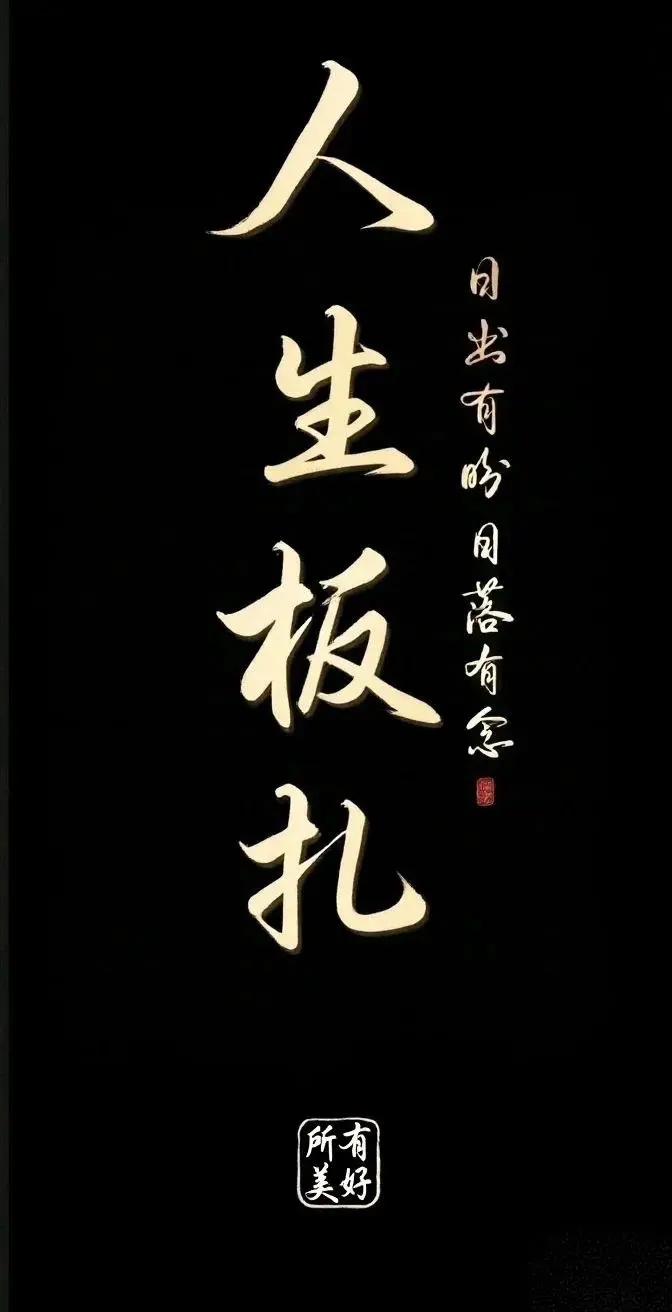 人生板扎
日出有盼日落有念
所有
美好